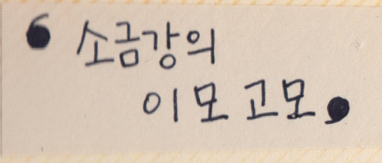 ❛ 소금강의
이모고모 ❜